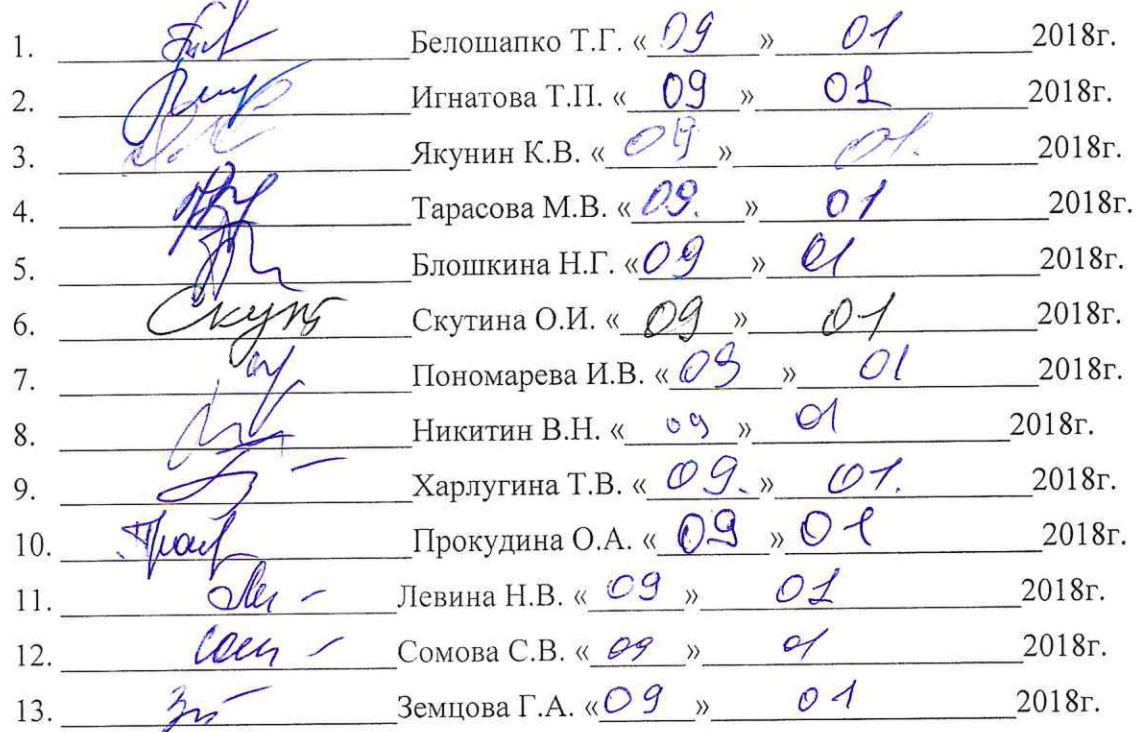 1. Белошапко Т.Г. « 09 » 01 2018г.
2. Игнатова Т.П. « 09 » 01 2018г.
3. Якунин К.В. « 09 » 01. 2018г.
4. Тарасова М.В. « 09. » 01 2018г.
5. Блошкина Н.Г. « 09 » 01 2018г.
6. Скутина О.И. « 09 » 01 2018г.
7. Пономарева И.В. « 09 » 01 2018г.
8. Никитин В.Н. « 09 » 01 2018г.
9. Харлугина Т.В. « 09. » 01. 2018г.
10. Прокудина О.А. « 09 » 01 2018г.
11. Левина Н.В. « 09 » 01 2018г.
12. Сомова С.В. « 09 » 01 2018г.
13. Земцова Г.А. « 09 » 01 2018г.